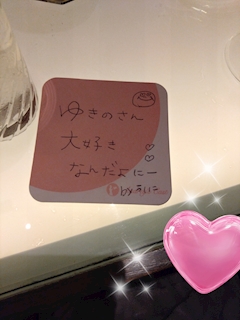 ゆきのさん
大好き
なんだよにー
by